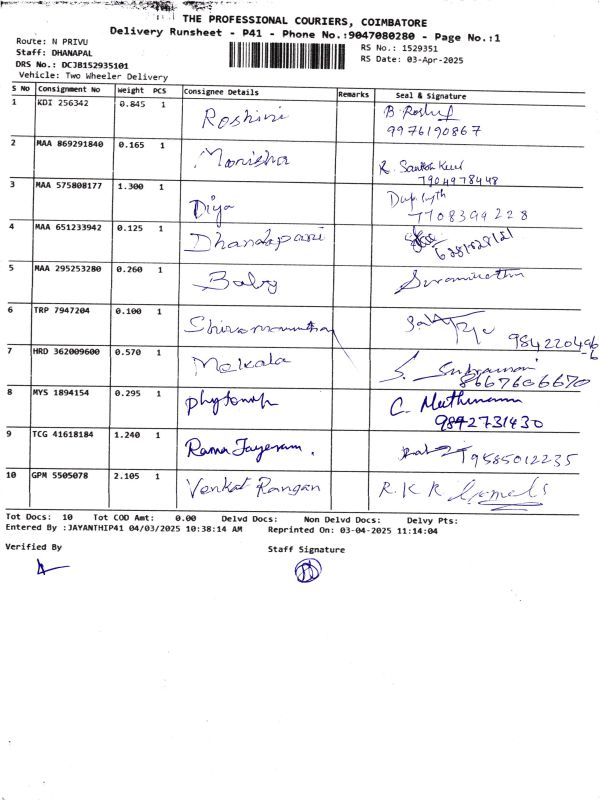 THE PROFESSIONAL COURIERS, COIMBATORE
Delivery Runsheet - P41 - Phone No.:9047080280 - Page No.:1
Route: N PRIVU
RS No.: 1529351
Staff: DHANAPAL
RS Date: 03-Apr-2025
DRS No.: DCJB152935101
Vehicle: Two Wheeler Delivery
S No Consignment No Weight PCS Consignee Details Remarks Seal & Signature
1 KDI 256342 0.845 1 Roshini
9976190867
2 MAA 869291840 0.165 1 Monisha
7904978448
3 MAA 575808177 1.300 1 Diya
7708394228
4 MAA 651233942 0.125 1 Dhandapani
5 MAA 295253280 0.260 1 Baby
6 TRP 7947204 0.100 1
7 HRD 362009600 0.570 1 Mekala
8667606670
8 MYS 1894154 0.295 1
9842731430
9 TCG 41618184 1.240 1 Rama Jayeram.
9585012235
10 GPM 5505078 2.105 1 Venkat Rangan R.K.R
Tot Docs: 10 Tot COD Amt: 0.00 Delvd Docs: Non Delvd Docs: Delvy Pts:
Entered By :JAYANTHIP41 04/03/2025 10:38:14 AM Reprinted On: 03-04-2025 11:14:04
Verified By
Staff Signature